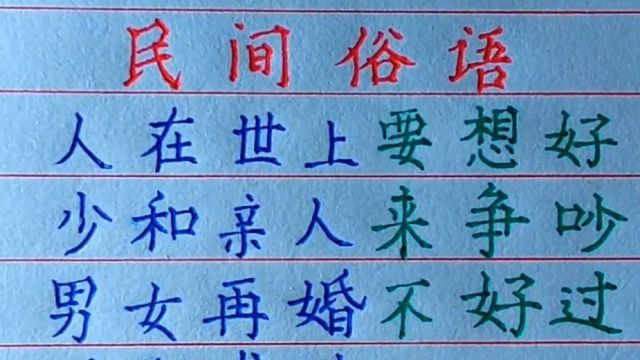 民间俗语
人在世上要想好
少和亲人来争吵
男女再婚不好过